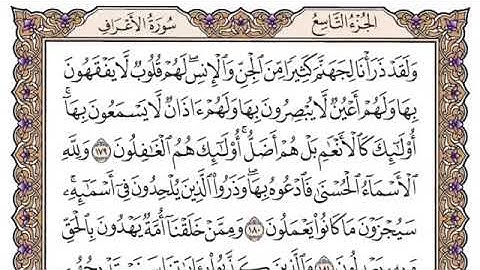 سُورَةُ الْأَعْرَافِ
الجُزْءُ التَّاسِعُ
وَلَقَدْ ذَرَأْنَا لِجَهَنَّمَ كَثِيرًا مِّنَ ٱلْجِنِّ وَٱلْإِنسِۖ لَهُمْ قُلُوبٌ لَّا يَفْقَهُونَ
بِهَا وَلَهُمْ أَعْيُنٌ لَّا يُبْصِرُونَ بِهَا وَلَهُمْ ءَاذَانٌ لَّا يَسْمَعُونَ بِهَآۚ
أُوْلَٰٓئِكَ كَٱلْأَنْعَٰمِ بَلْ هُمْ أَضَلُّۚ أُوْلَٰٓئِكَ هُمُ ٱلْغَٰفِلُونَ ١٧٩ وَلِلَّهِ
ٱلْأَسْمَآءُ ٱلْحُسْنَىٰ فَٱدْعُوهُ بِهَاۖ وَذَرُواْ ٱلَّذِينَ يُلْحِدُونَ فِىٓ أَسْمَٰٓئِهِۦۚ
سَيُجْزَوْنَ مَا كَانُواْ يَعْمَلُونَ ١٨٠ وَمِمَّنْ خَلَقْنَآ أُمَّةٌ يَهْدُونَ بِٱلْحَقِّ